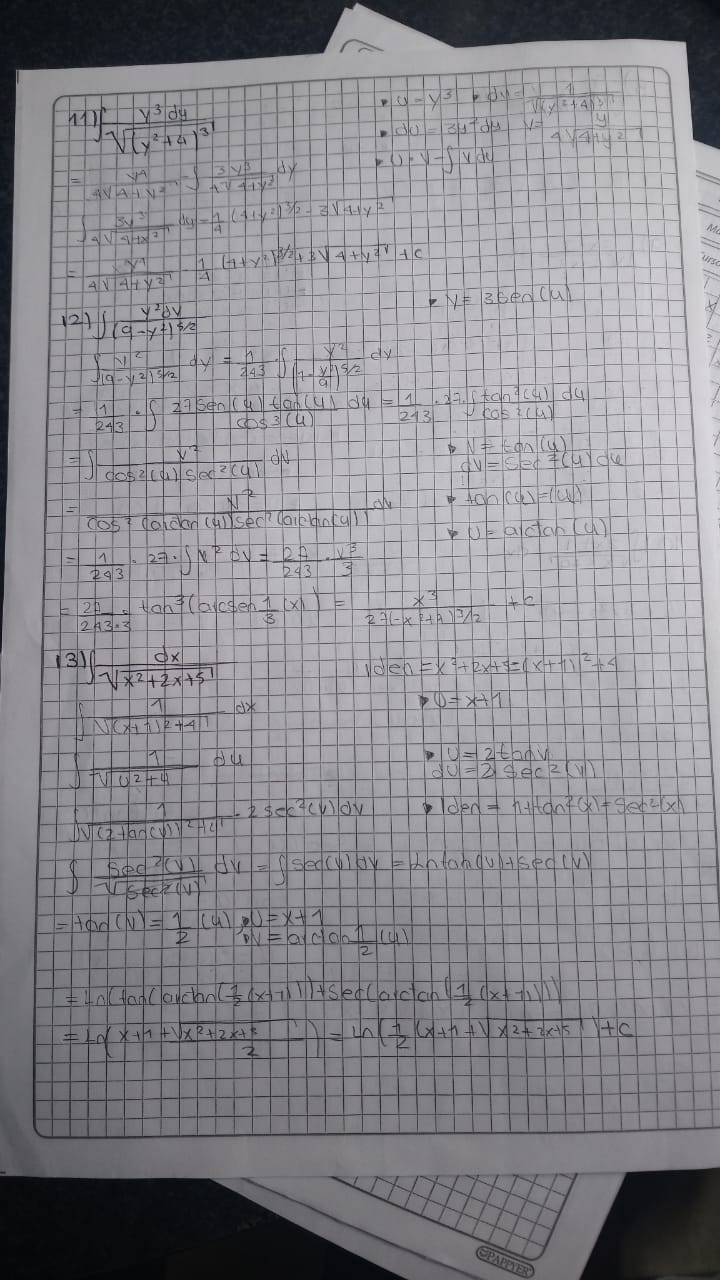 11) ∫ y³ dy / √(y²+4)³  • u = y³ • dv = 1 / √(y²+4)³
• du = 3y² dy  v = y / 4√4+y²
= y⁴ / 4√4+y² - ∫ 3y³ / 4√4+y² dy  • u·v - ∫ v du
∫ 3y³ / 4√4+x² dy = 1/4 (4+y²)^3/2 - 3√4+y²
= y⁴ / 4√4+y² - 1/4 (4+y²)^3/2 + 3√4+y² + c
12) ∫ y² dy / (9-y²)^5/2  • y = 3sen(u)
∫ y² / (9-y²)^5/2 dy = 1/243 · ∫ y² / (1 - y²/9)^5/2 dy
= 1/243 · ∫ 27 sen(u) tan(u) / cos³(u) du = 1/243 · 27 · ∫ tan²(u) / cos²(u) du
= ∫ v² / cos²(u) sec²(u) dv  • v = tan(u)
dv = sec²(u) du
= v² / cos² (arctan(u)) sec² (arctan(u)) dv  • tan(u) = (u)
• u = arctan(u)
= 1/243 · 27 · ∫ v² dv = 27/243 · v³/3
= 27/243·3 · tan³(arcsen 1/3 (x)) = x³ / 27(-x²+9)^3/2 + c
13) ∫ dx / √x²+2x+5  Iden = x²+2x+5 = (x+1)²+4
∫ 1 / √(x+1)²+4 dx  • U = x+1
∫ 1 / √u²+4 du  • U = 2tanv
dU = 2 sec²(v)
∫ 1 / √(2tan(v))²+4 · 2sec²(v) dv  • Iden = 1+tan²(x) = Sec²(x)
∫ Sec²(v) / √sec²(v) dv = ∫ sec(v) dv = Ln tan(v) + sec(v)
= tan(v) = 1/2 (u), • U = x+1
• V = arctan 1/2 (u)
= Ln(tan(arctan(1/2 (x+1))) + sec(arctan(1/2 (x+1))))
= Ln( x+1+√x²+2x+5 / 2 ) = Ln( 1/2 (x+1+√x²+2x+5 ) + c
PAPYER